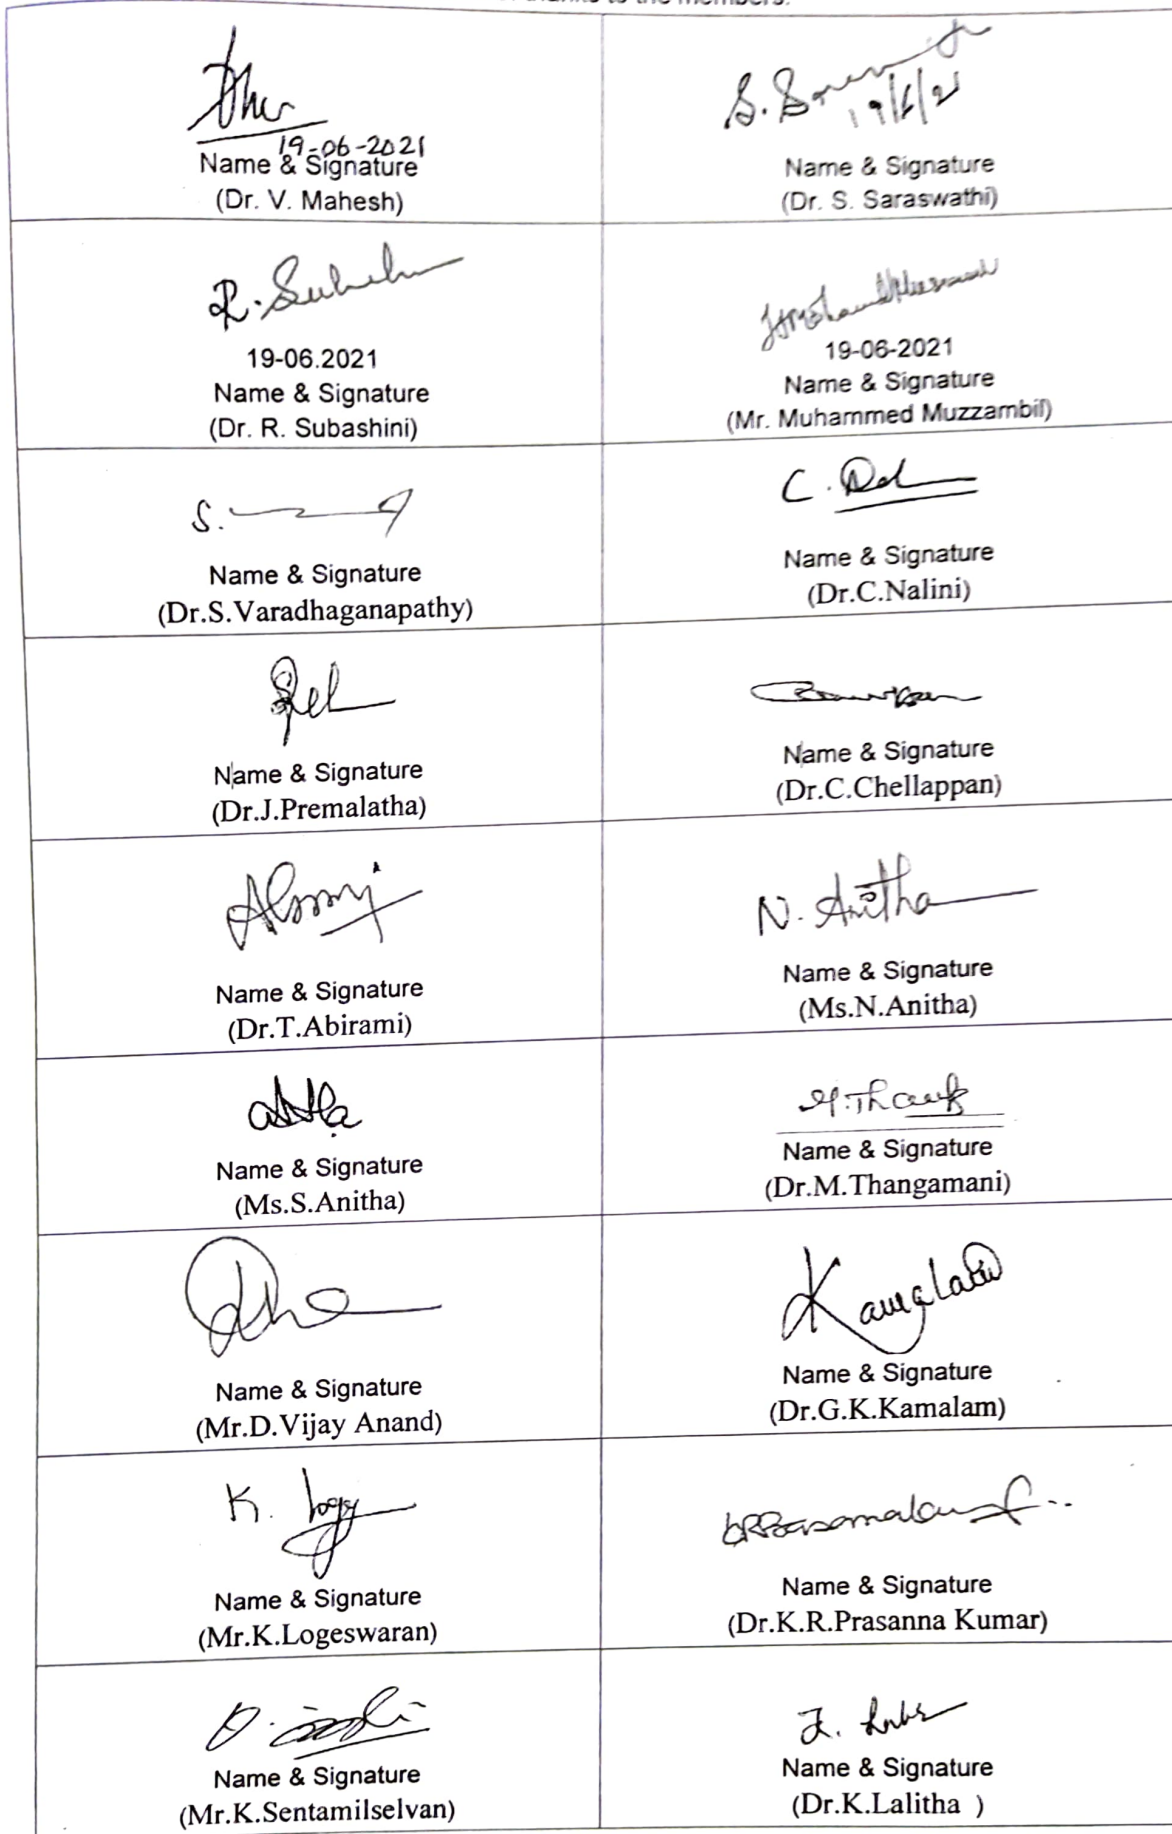 thanks to the members.
19-06-2021
Name & Signature
(Dr. V. Mahesh)
19/6/21
Name & Signature
(Dr. S. Saraswathi)
19-06.2021
Name & Signature
(Dr. R. Subashini)
19-06-2021
Name & Signature
(Mr. Muhammed Muzzambil)
S.
Name & Signature
(Dr.S.Varadhaganapathy)
C.
Name & Signature
(Dr.C.Nalini)
Name & Signature
(Dr.J.Premalatha)
Name & Signature
(Dr.C.Chellappan)
Name & Signature
(Dr.T.Abirami)
N. Anitha
Name & Signature
(Ms.N.Anitha)
Name & Signature
(Ms.S.Anitha)
Name & Signature
(Dr.M.Thangamani)
Name & Signature
(Mr.D.Vijay Anand)
Name & Signature
(Dr.G.K.Kamalam)
K.
Name & Signature
(Mr.K.Logeswaran)
Name & Signature
(Dr.K.R.Prasanna Kumar)
Name & Signature
(Mr.K.Sentamilselvan)
Name & Signature
(Dr.K.Lalitha )